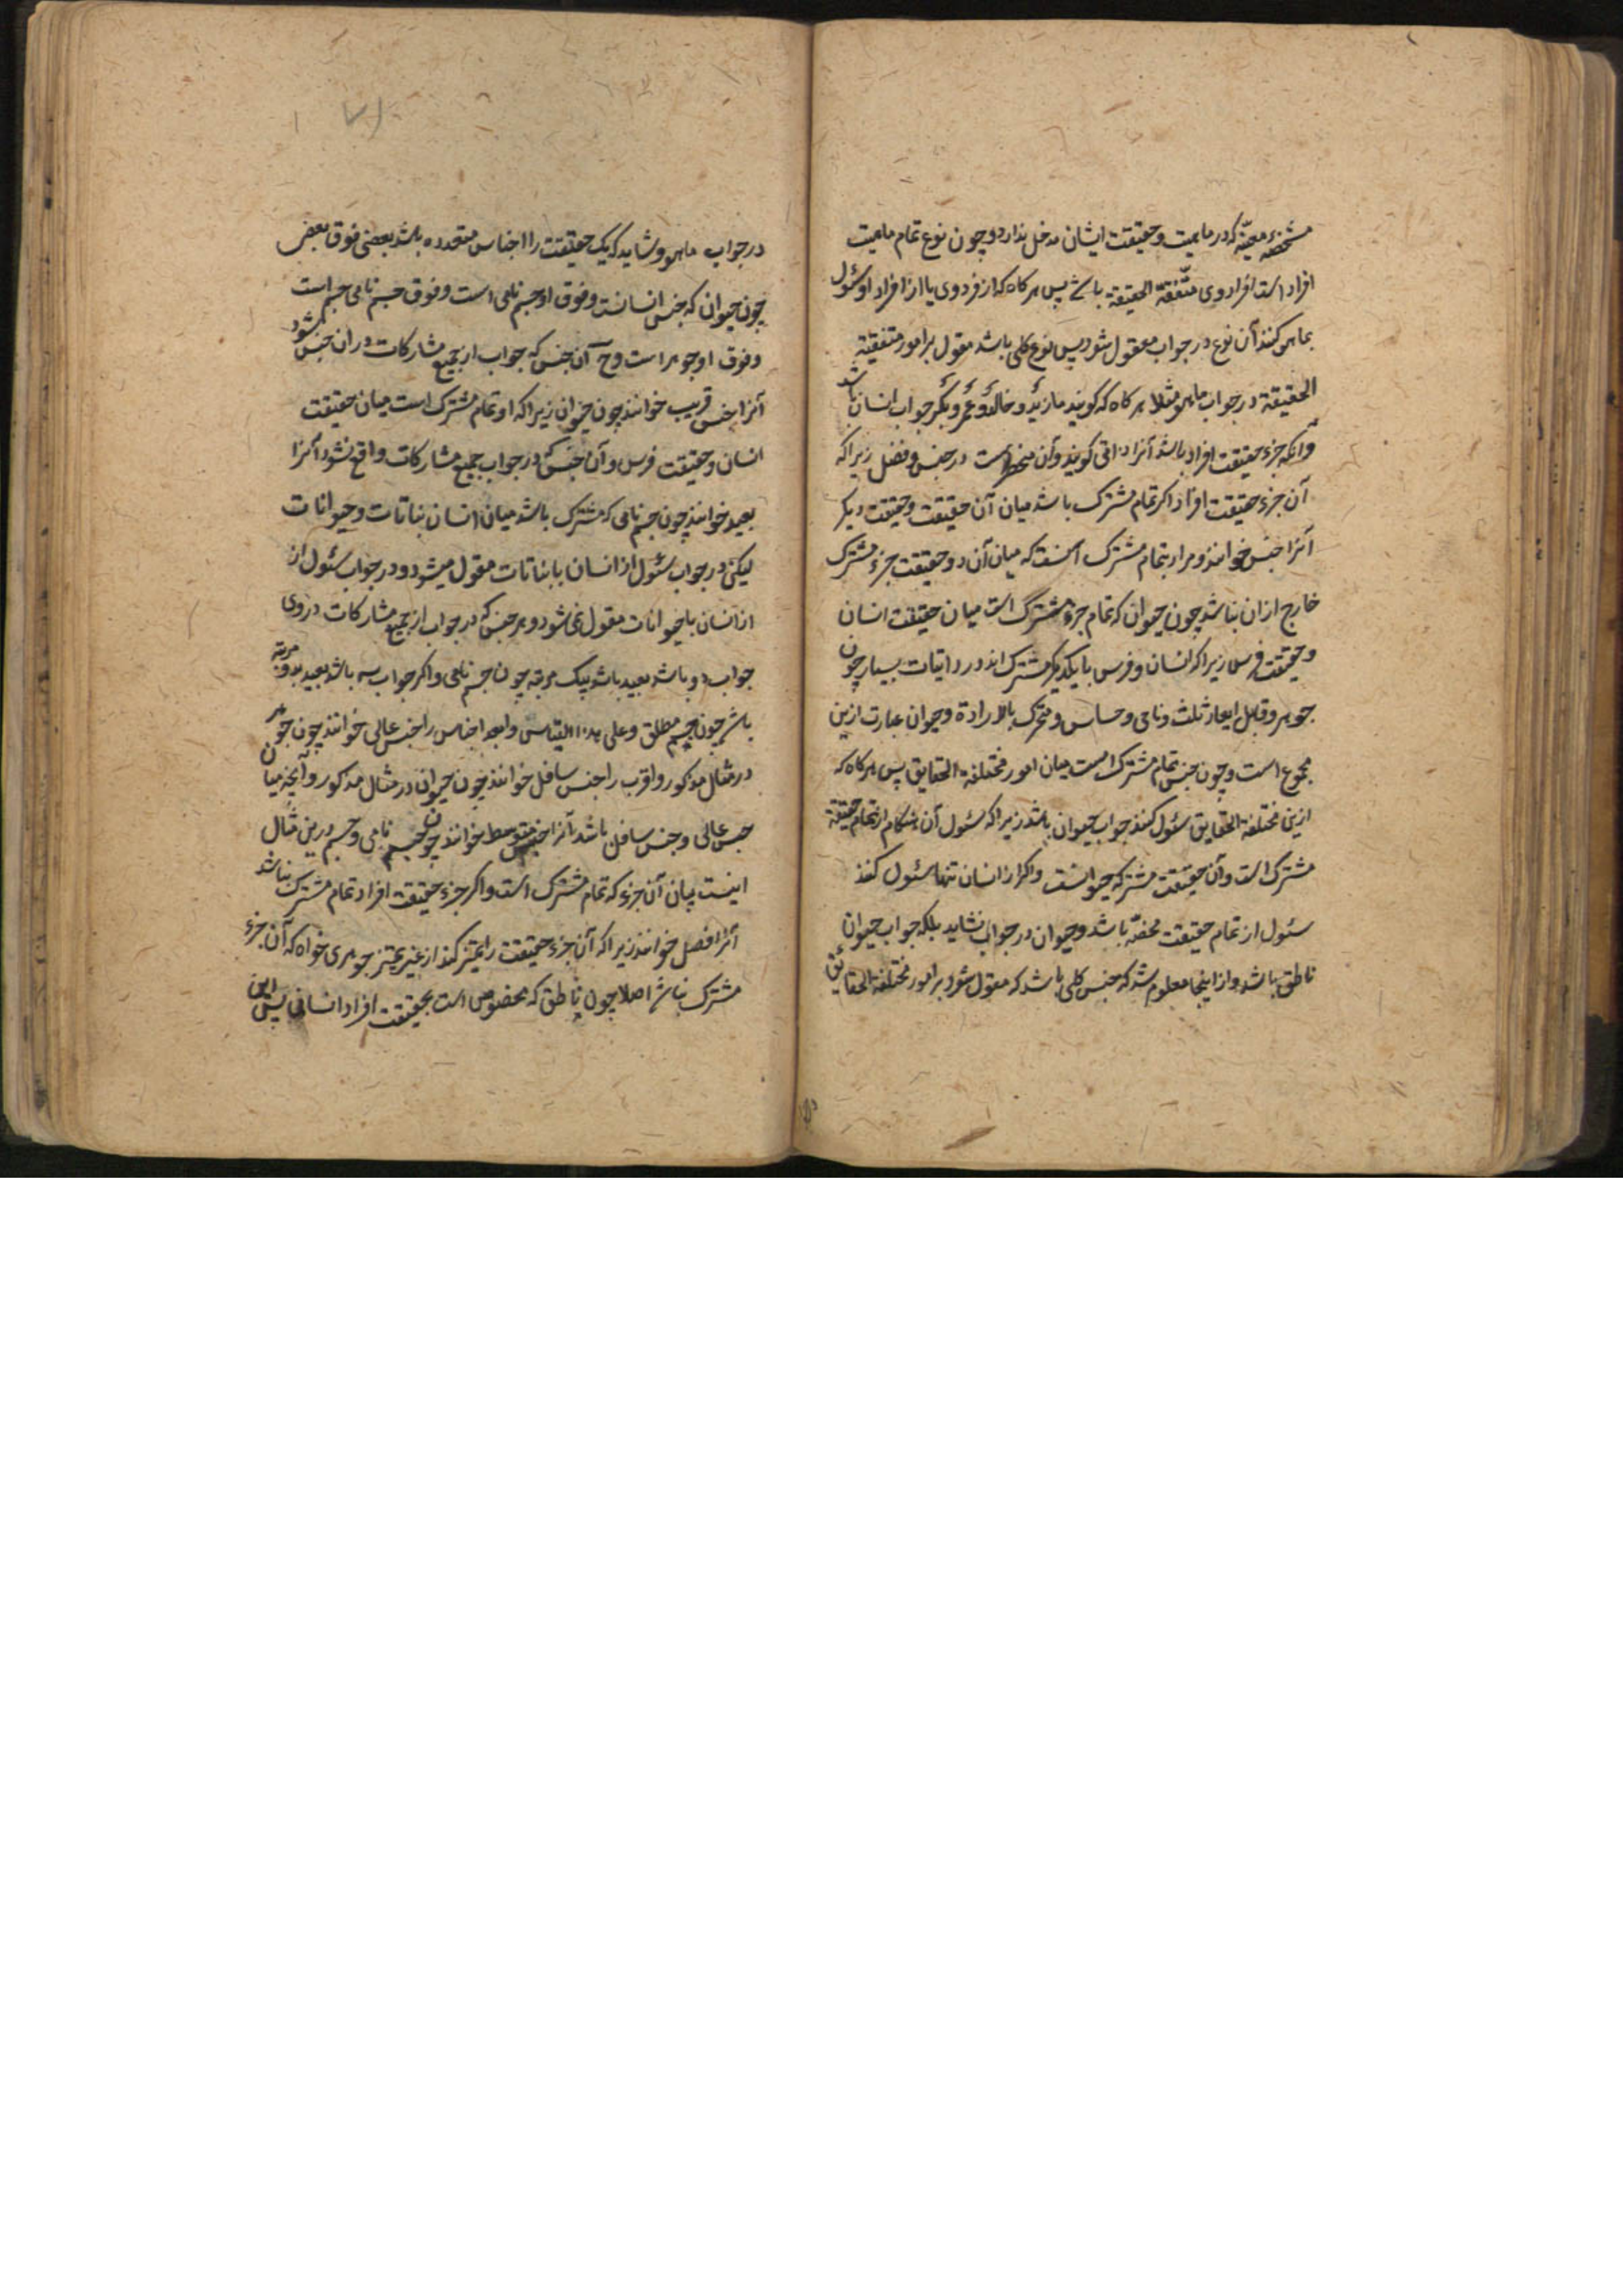 مشخصه معینه که در ماهیت و حقیقت ایشان مدخل ندارد و چون نوع تمام ماهیت
افراد است افراد وی متفقة الحقیقة باشد پس هرکاه که از فردوی یا از افراد او سئول
بماهو کنند آن نوع در جواب مقول شود پس نوع کلی باشد مقول بر امور متفقة
الحقیقة در جواب ماهو مثلا هرکاه که کویند ما زید و خالد و عمرو و بکر جواب انسان باشد
و آنکه جزء حقیقت افراد باشد آنرا ذاتی کویند و آن منحصر است در جنس و فصل زیراکه
آن جزء حقیقت افراد اکر تمام مشترک باشد میان آن حقیقت و حقیقت دیکر
آنرا جنس خوانند و مراد بتمام مشترک آنست که میان آن دو حقیقت جزء مشترک
خارج ازان نباشد چون حیوان که تمام جزء مشترک است میان حقیقت انسان
و حقیقت فرس زیراکه انسان و فرس با یکدیکر مشترک اند در ذاتیات بسیار چون
جوهر و قابل ابعاد ثلث و نامی و حساس و متحرک بالارادة و حیوان عبارت ازین
مجموع است و چون جنس تمام مشترک است میان امور مختلفة الحقایق پس هرکاه که
ازین مختلفة الحقایق سئول کنند جواب حیوان باشد زیراکه سئول آن هنکام از تمام حقیقة
مشترک است و آن حقیقت مشترکه حیوانست و اکر از انسان تنها سئول کنند
سئول از تمام حقیقت مختصه باشد و حیوان در جواب نشاید بلکه جواب حیوان
ناطق باشد و از اینجا معلوم شد که جنس کلی باشد که مقول شود بر امور مختلفة الحقایق
در جواب ماهو و شاید که یک حقیقت را اجناس متعدده باشد بعضی فوق بعض
چون حیوان که جنس انسانست و فوق او جسم نامی است و فوق جسم نامی جسم است
و فوق او جوهر است وح آن جنس که جواب از جمیع مشارکات در ان جنس شود
آنرا جنس قریب خوانند چون حیوان زیراکه او تمام مشترک است میان حقیقت
انسان و حقیقت فرس و آن جنس که در جواب جمیع مشارکات واقع نشود آنرا
بعید خوانند چون جسم نامی که مشترک باشد میان انسان نباتات و حیوانات
لیکن در جواب سئول از انسان با نباتات مقول میشود و در جواب سئول از
از انسان با حیوانات مقول نمی شود و هر جنس که در جواب از جمیع مشارکات در وی
جواب دو باشد بعید باشد بیک مرتبه چون جسم نامی و اکر جواب سه باشد بعید بدو مرتبه
باشد چون جسم مطلق و علی هذا القیاس و ابعد اجناس را جنس عالی خوانند چون جوهر
در مثال مذکور و اقرب را جنس سافل خوانند چون حیوان در مثال مذکور و آنچه میان
جنس عالی و جنس سافل باشد آنرا جنس متوسط خوانند چون جسم نامی و جسم درین مثال
اینست بیان آن جزء که تمام مشترک است و اکر جزء حقیقت افراد تمام مشترک نباشد
آنرا فصل خوانند زیراکه آن جزء حقیقت را تمیز کند از غیر تمیز جوهری خواه که آن جزء
مشترک نباشد اصلا چون ناطق که مخصوص است بحقیقت افراد انسانی پس این